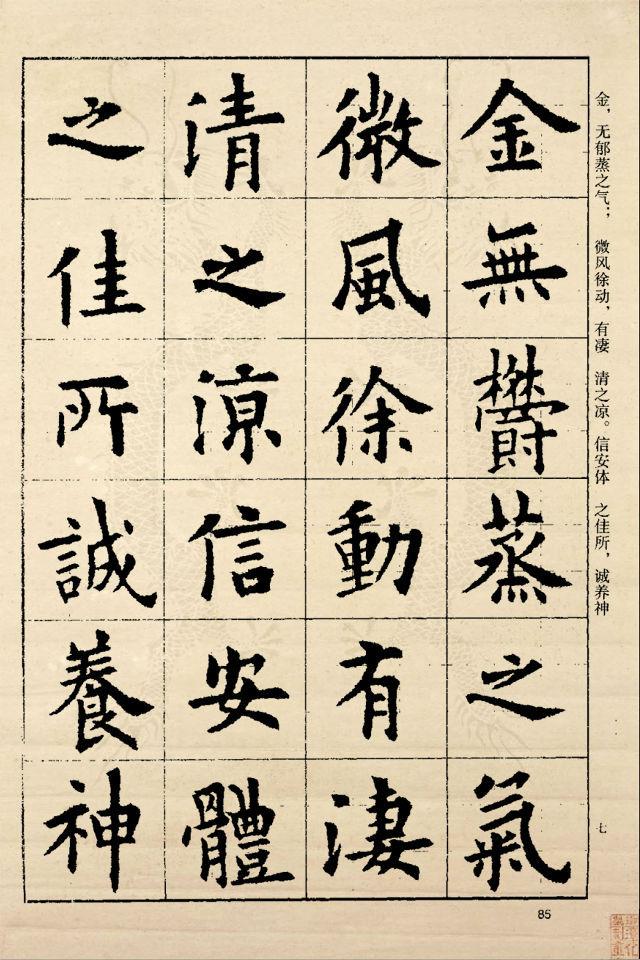 金無鬱蒸之氣
微風徐動有淒
清之涼信安體
之佳所誠養神
金，无郁蒸之气；　微风徐动，有凄　清之凉。信安体　之佳所，诚养神
七
85